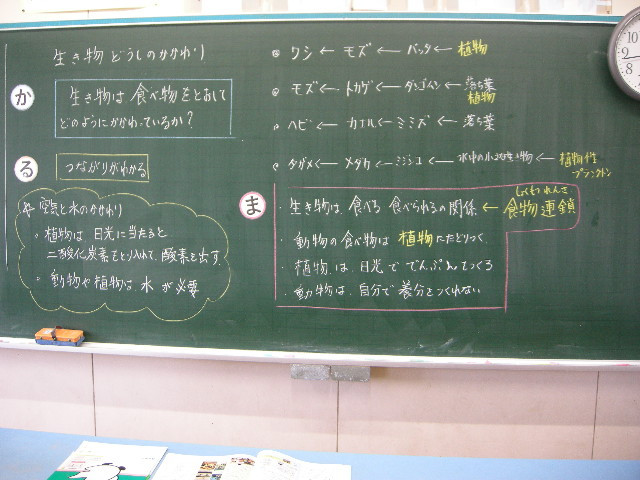 生き物どうしのかかわり
か
生き物は食べ物をとおして
どのようにかかわっているか?
る
つながりがわかる
空気と水のかかわり
・植物は日光に当たると
二酸化炭素をとり入れて、酸素を出す。
・動物や植物は水が必要
ワシ←モズ←バッタ←植物
モズ←トカゲ←ダンゴムシ←落ち葉
植物
ヘビ←カエル←ミミズ←落ち葉
タガメ←メダカ←ミジンコ←水中の小さな生き物←植物性
プランクトン
ま
しょくもつれんさ
・生き物は、食べる 食べられるの関係←食物連鎖
・動物の食べ物は植物にたどりつく。
・植物は、日光ででんぷんをつくる
・動物は、自分で養分をつくれない
10
9
8